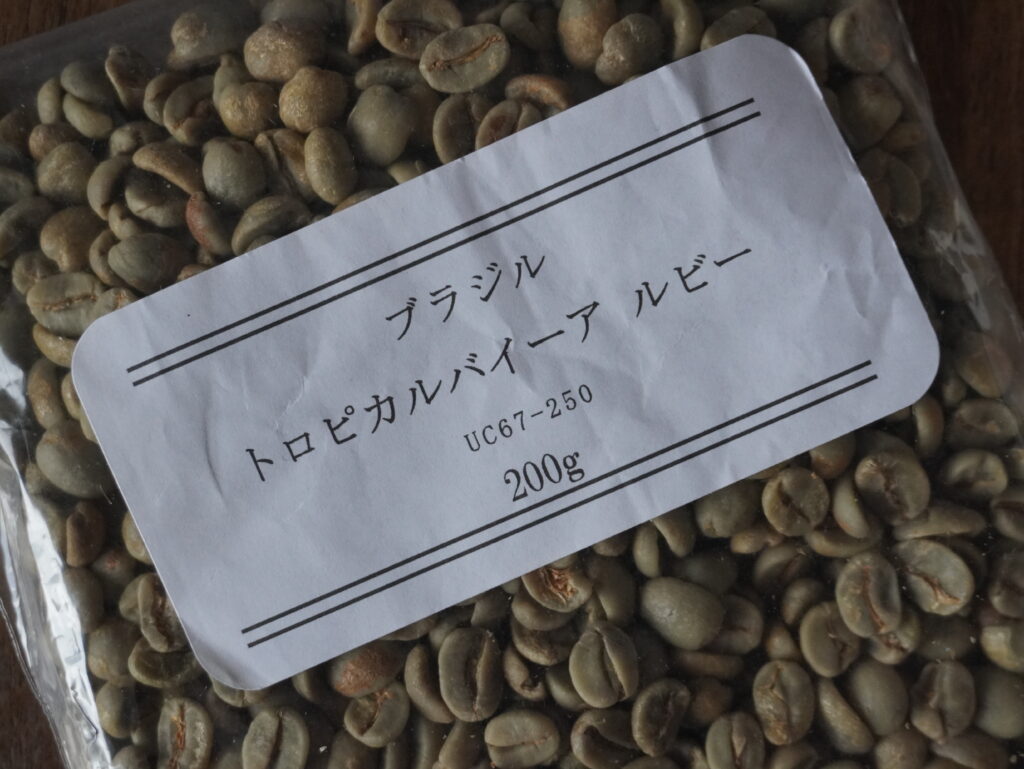 ブラジル
トロピカルバイーア ルビー
UC67-250
200g